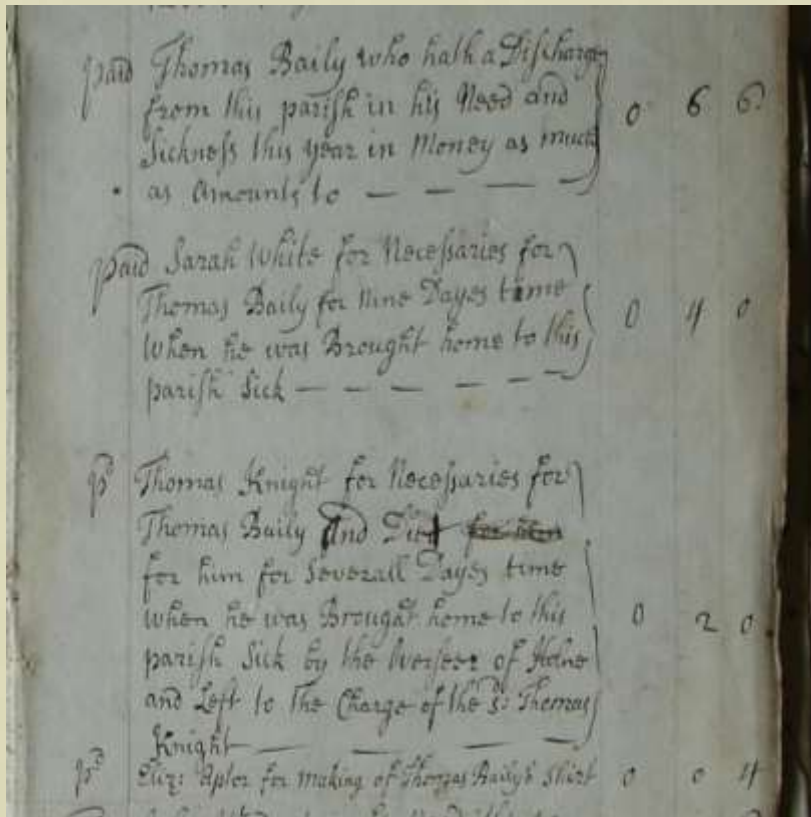 paid Thomas Baily who hath a Discharge
from this parish in his Need and
Sickness this year in Money as much
as Amounts to — — — — 0 6 6
paid Sarah White for Necessaries for
Thomas Baily for Nine Dayes time
when he was Brought home to this
parish Sick — — — — — — 0 4 0
pd Thomas Knight for Necessaries for
Thomas Baily And Diet
for him for Severall Dayes time
when he was Brought home to this 0 2 0
parish Sick by the Overseer of Holne
and Left to The Charge of the sd: Thomas
Knight — — — — —
pd Eliz: for making of Thomas Baily's Shirt 0 0 4